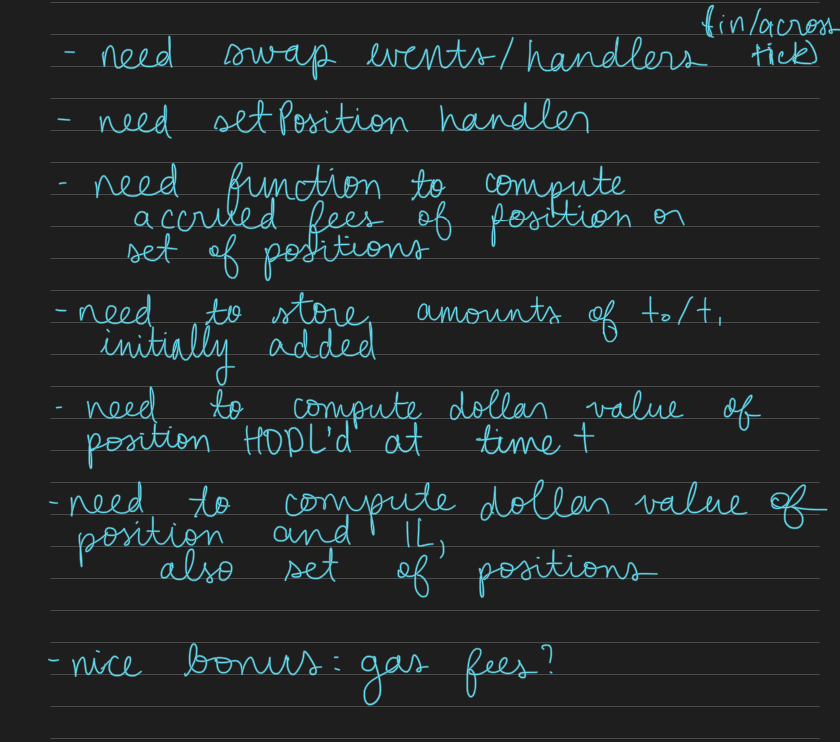 - need swap events/handlers (in/across tick)
- need setPosition handler
- need function to compute
accrued fees of position or
set of positions
- need to store amounts of t₀/t₁
initially added
- need to compute dollar value of
position HODL'd at time t
- need to compute dollar value of
position and IL,
also set of positions
- nice bonus: gas fees?